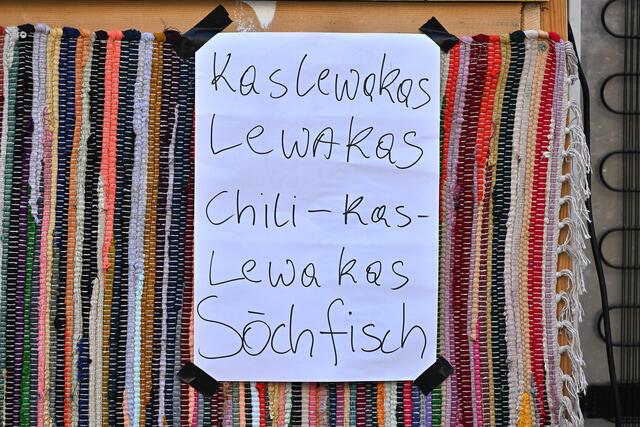 Kaslewakas
LewaKas
Chili-Kas-
Lewakas
Sōchfisch